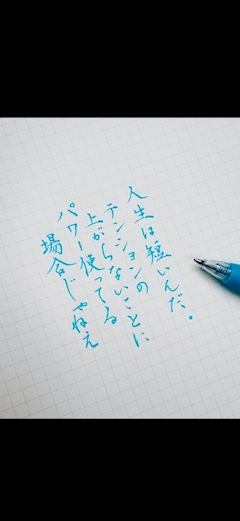 人生は短いんだ。
テンションの
上がらないことに
パワー使ってる
場合じゃねえ